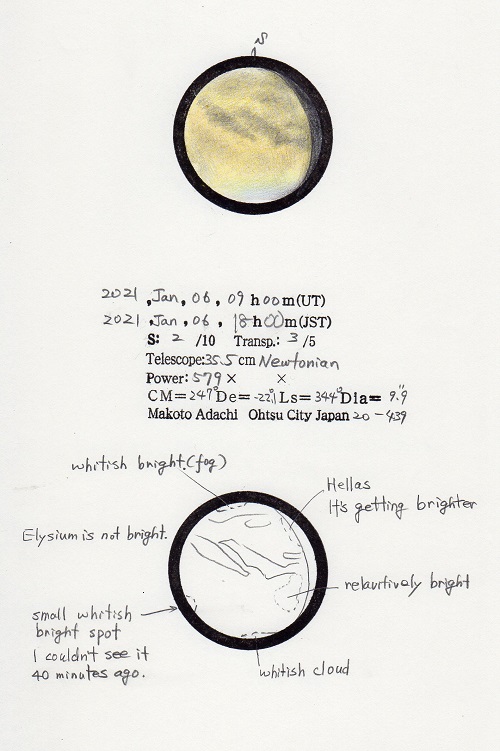 S
2021, Jan, 06, 09h00m(UT)
2021, Jan, 06, 18h00m(JST)
S: 2 /10 Transp.: 3 /5
Telescope:35.5 cm Newtonian
Power: 579 × ×
CM=247° De= -22.1 Ls= 344° Dia= 9.9"
Makoto Adachi Ohtsu City Japan 20-439
whitish bright.(fog)
Hellas
It's getting brighter
Elysium is not bright.
relauritively bright
small whitish
bright spot
I couldn't see it
40 minutes ago.
whitish cloud